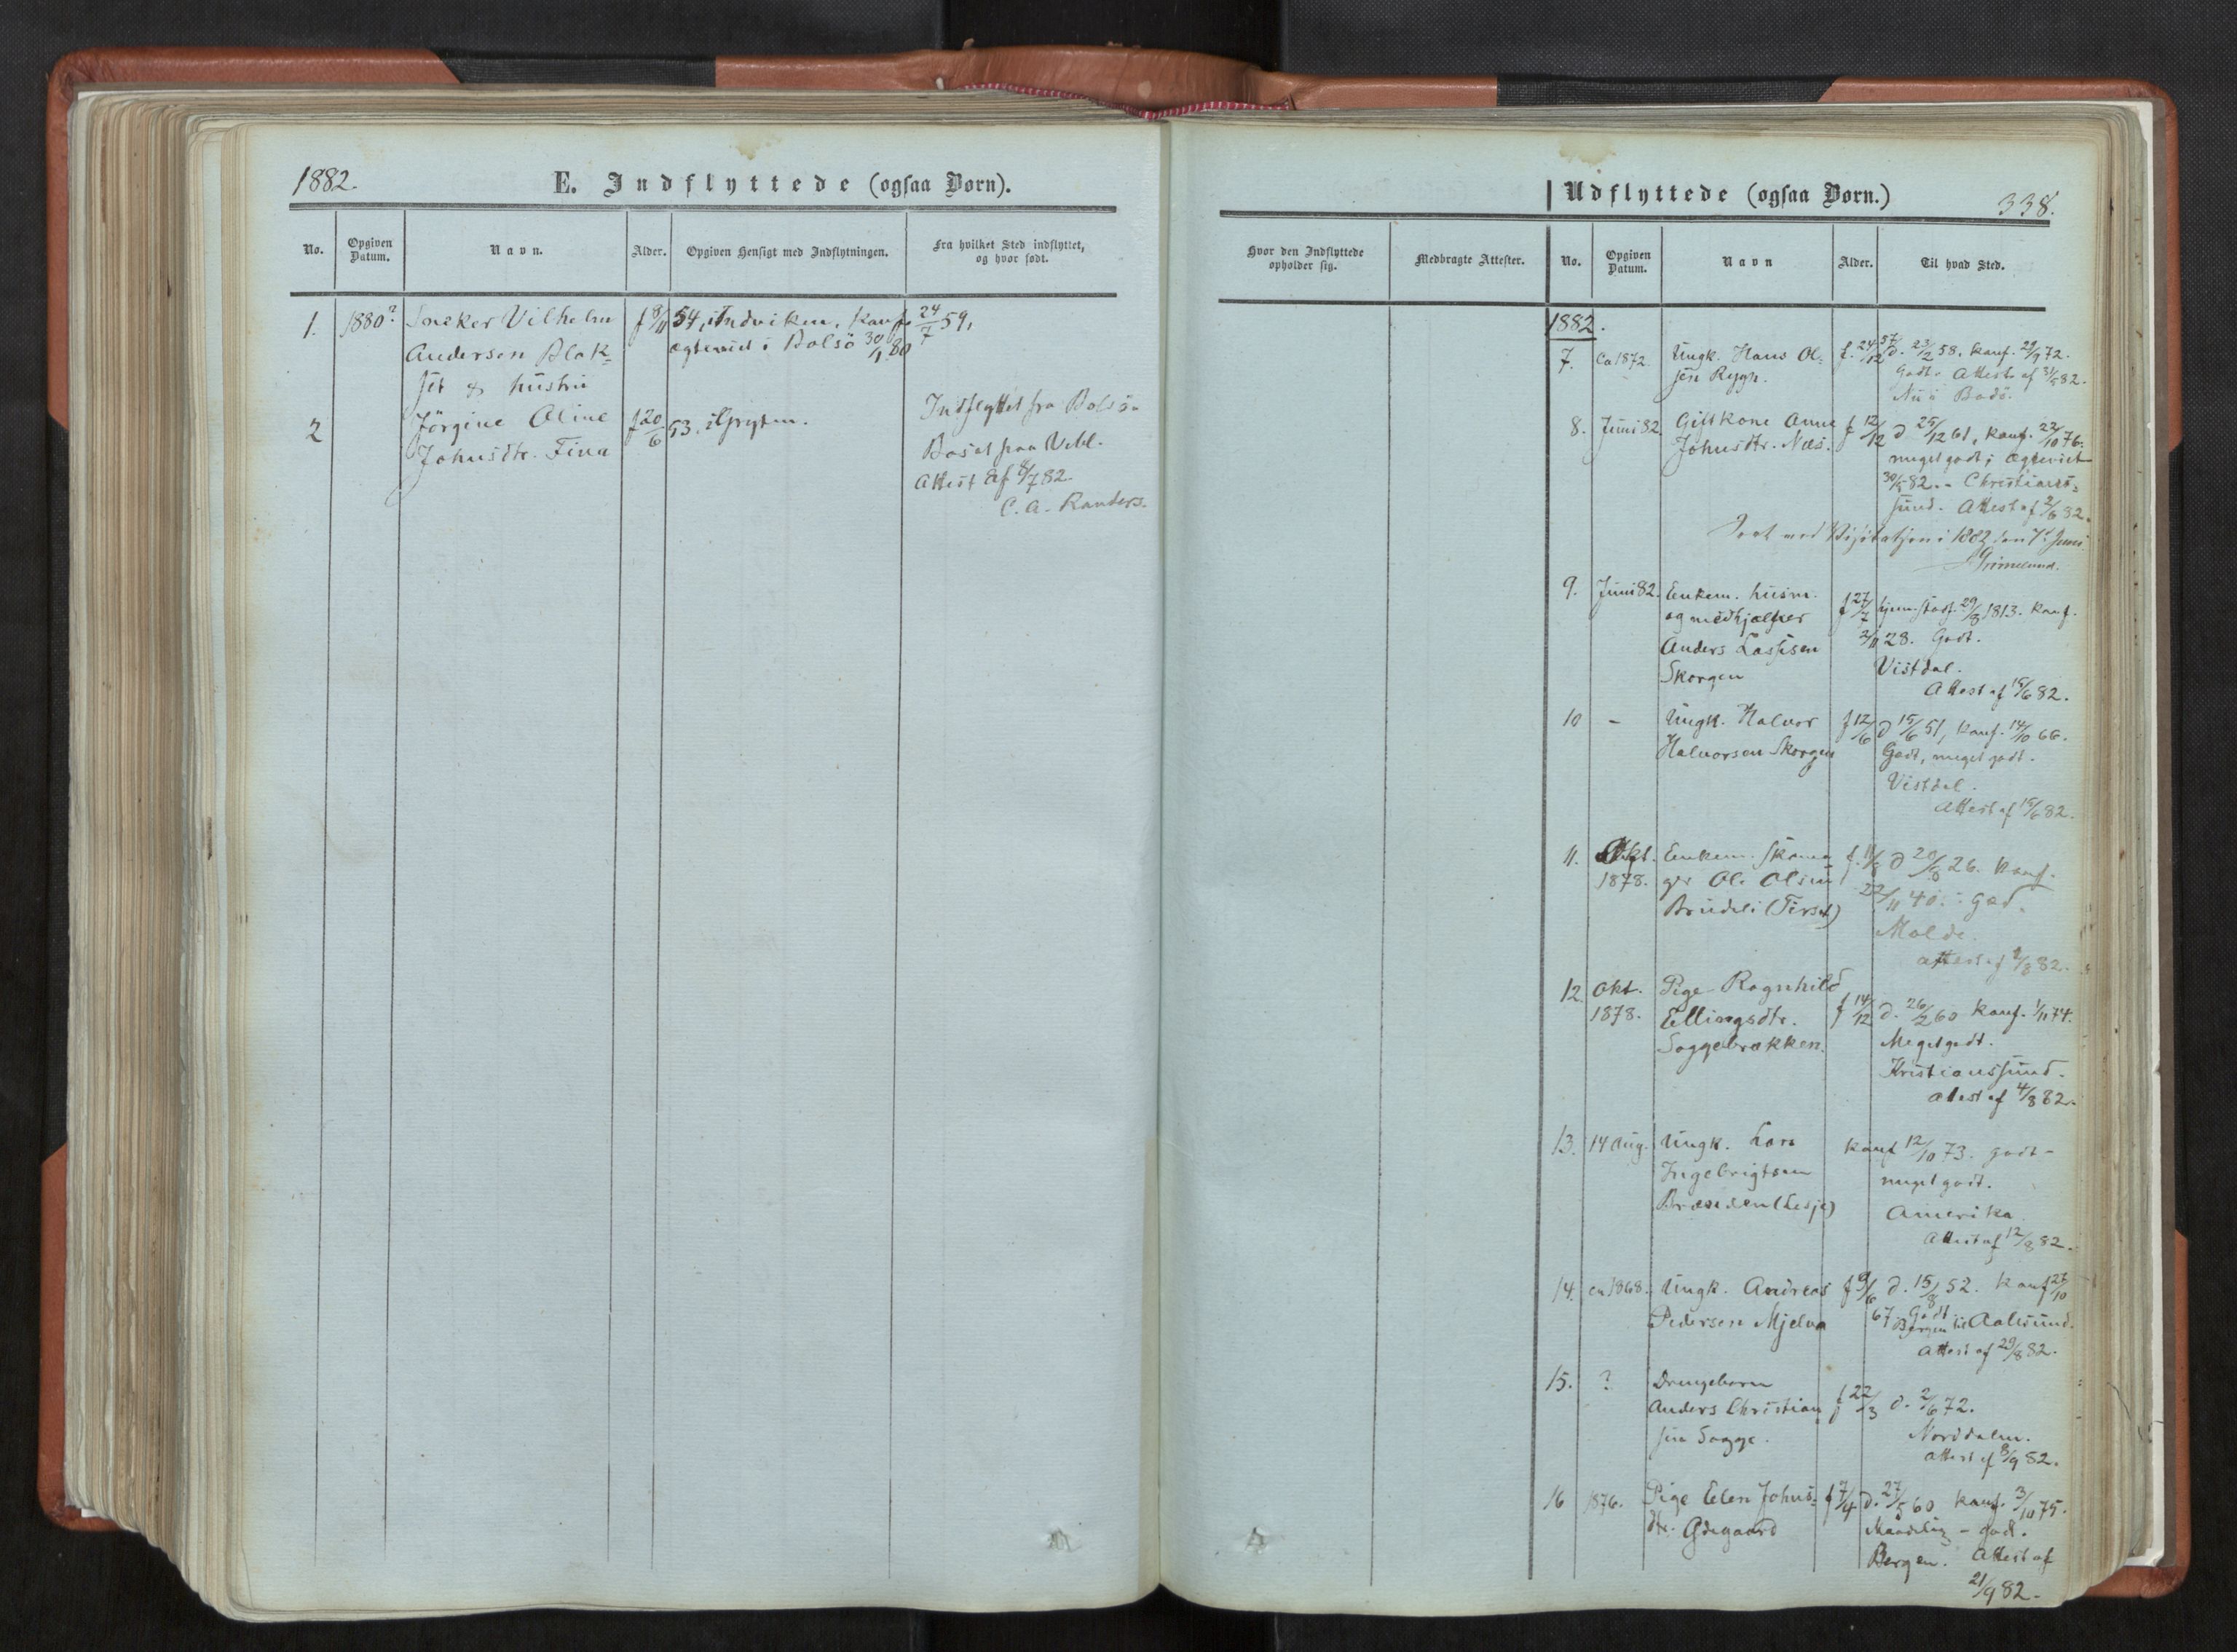 1882.
E. Indflyttede (ogsaa Børn).
No.
Opgiven Datum.
Navn.
Alder.
Opgiven Hensigt med Indflytningen.
Fra hvilket Sted indflyttet,
og hvor født.
1. 1880? Sneker Vilhelm f 8/11 54, i Indviken, konf. 24/7 59,
Andersen Blak= ægteviet i Bolsö 30/1 80
set & hustru
2 Jörgine Oline f 20/6 53. i Grytten. Indflyttet fra Bolsö.
Johnsdtr. Fiva Bosat paa Vebl.
Attest af 8/7 82.
C. A. Randers.
Udflyttede (ogsaa Børn.)
338.
Hvor den Indflyttede
opholder sig.
Medbragte Attester.
No.
Opgiven
Datum.
Navn
Alder.
Til hvad Sted.
1882.
7. Ca 1872 Ungk. Hans Ol= f. 24/12 57 d. 23/2 58, konf. 29/9 72.
sen Rygh. Godt. Attest af 31/5 82.
Nu i Bodö.
8. Juni 82 Giftkone Anne f 12/12 d 25/12 61, konf. 22/10 76.
Johnsdtr. Næs. meget godt; ægteviet
30/5 82. - Christians=
sund. Attest af 2/6 82.
Seet ved Visitatsen i 1882 den 7. Juni
Grimelund.
9. Juni 82. Enkem. husm. f 27/7 hjem. stadf. 29/8 1813. konf.
og medhjælper 3/11 28. Godt.
Anders Lassesen Vistdal.
Skorgen Attest af 15/6 82.
10 - Ungk. Halvor f 12/6 d 15/6 51, konf. 14/10 66.
Halvorsen Skorgen Godt, meget godt.
Vistdal.
Attest af 15/6 82.
11. Okt. Enkem. skoma= f. 11/8 d 20/8 26. konf.
1878. ger Ole Olsen 22/11 40. - god.
Brudeli (Tirset) Molde.
attest af 2/8 82.
12. Okt. Pige Ragnhild f 14/12 d. 26/2 60 konf. 1/11 74.
1878. Ellingsdtr. Meget godt.
Soggebrækken. Kristianssund.
attest af 4/8 82.
13. 14 Aug. Ungk. Lars konf 12/10 73. godt -
Ingebrigtsen meget godt.
Brænden (Lesje) Amerika
Attest af 12/8 82.
14. ca 1868. Ungk. Andreas f 9/6 d. 15/8 52. konf 27/10
Pedersen Mjelva 67 Godt. Bergen til Aalesund.
Attest af 29/8 82.
15. ? Drengebarn
Anders Christian f 22/3 d. 2/6 72.
sen Sogge. Norddalen.
attest af 8/9 82.
16 1876. Pige Elen Johns= f 7/4 d. 27/5 60 konf. 3/10 75.
dtr. Ødegaard Maadelig - godt.
Bergen. Attest af
21/9 82.